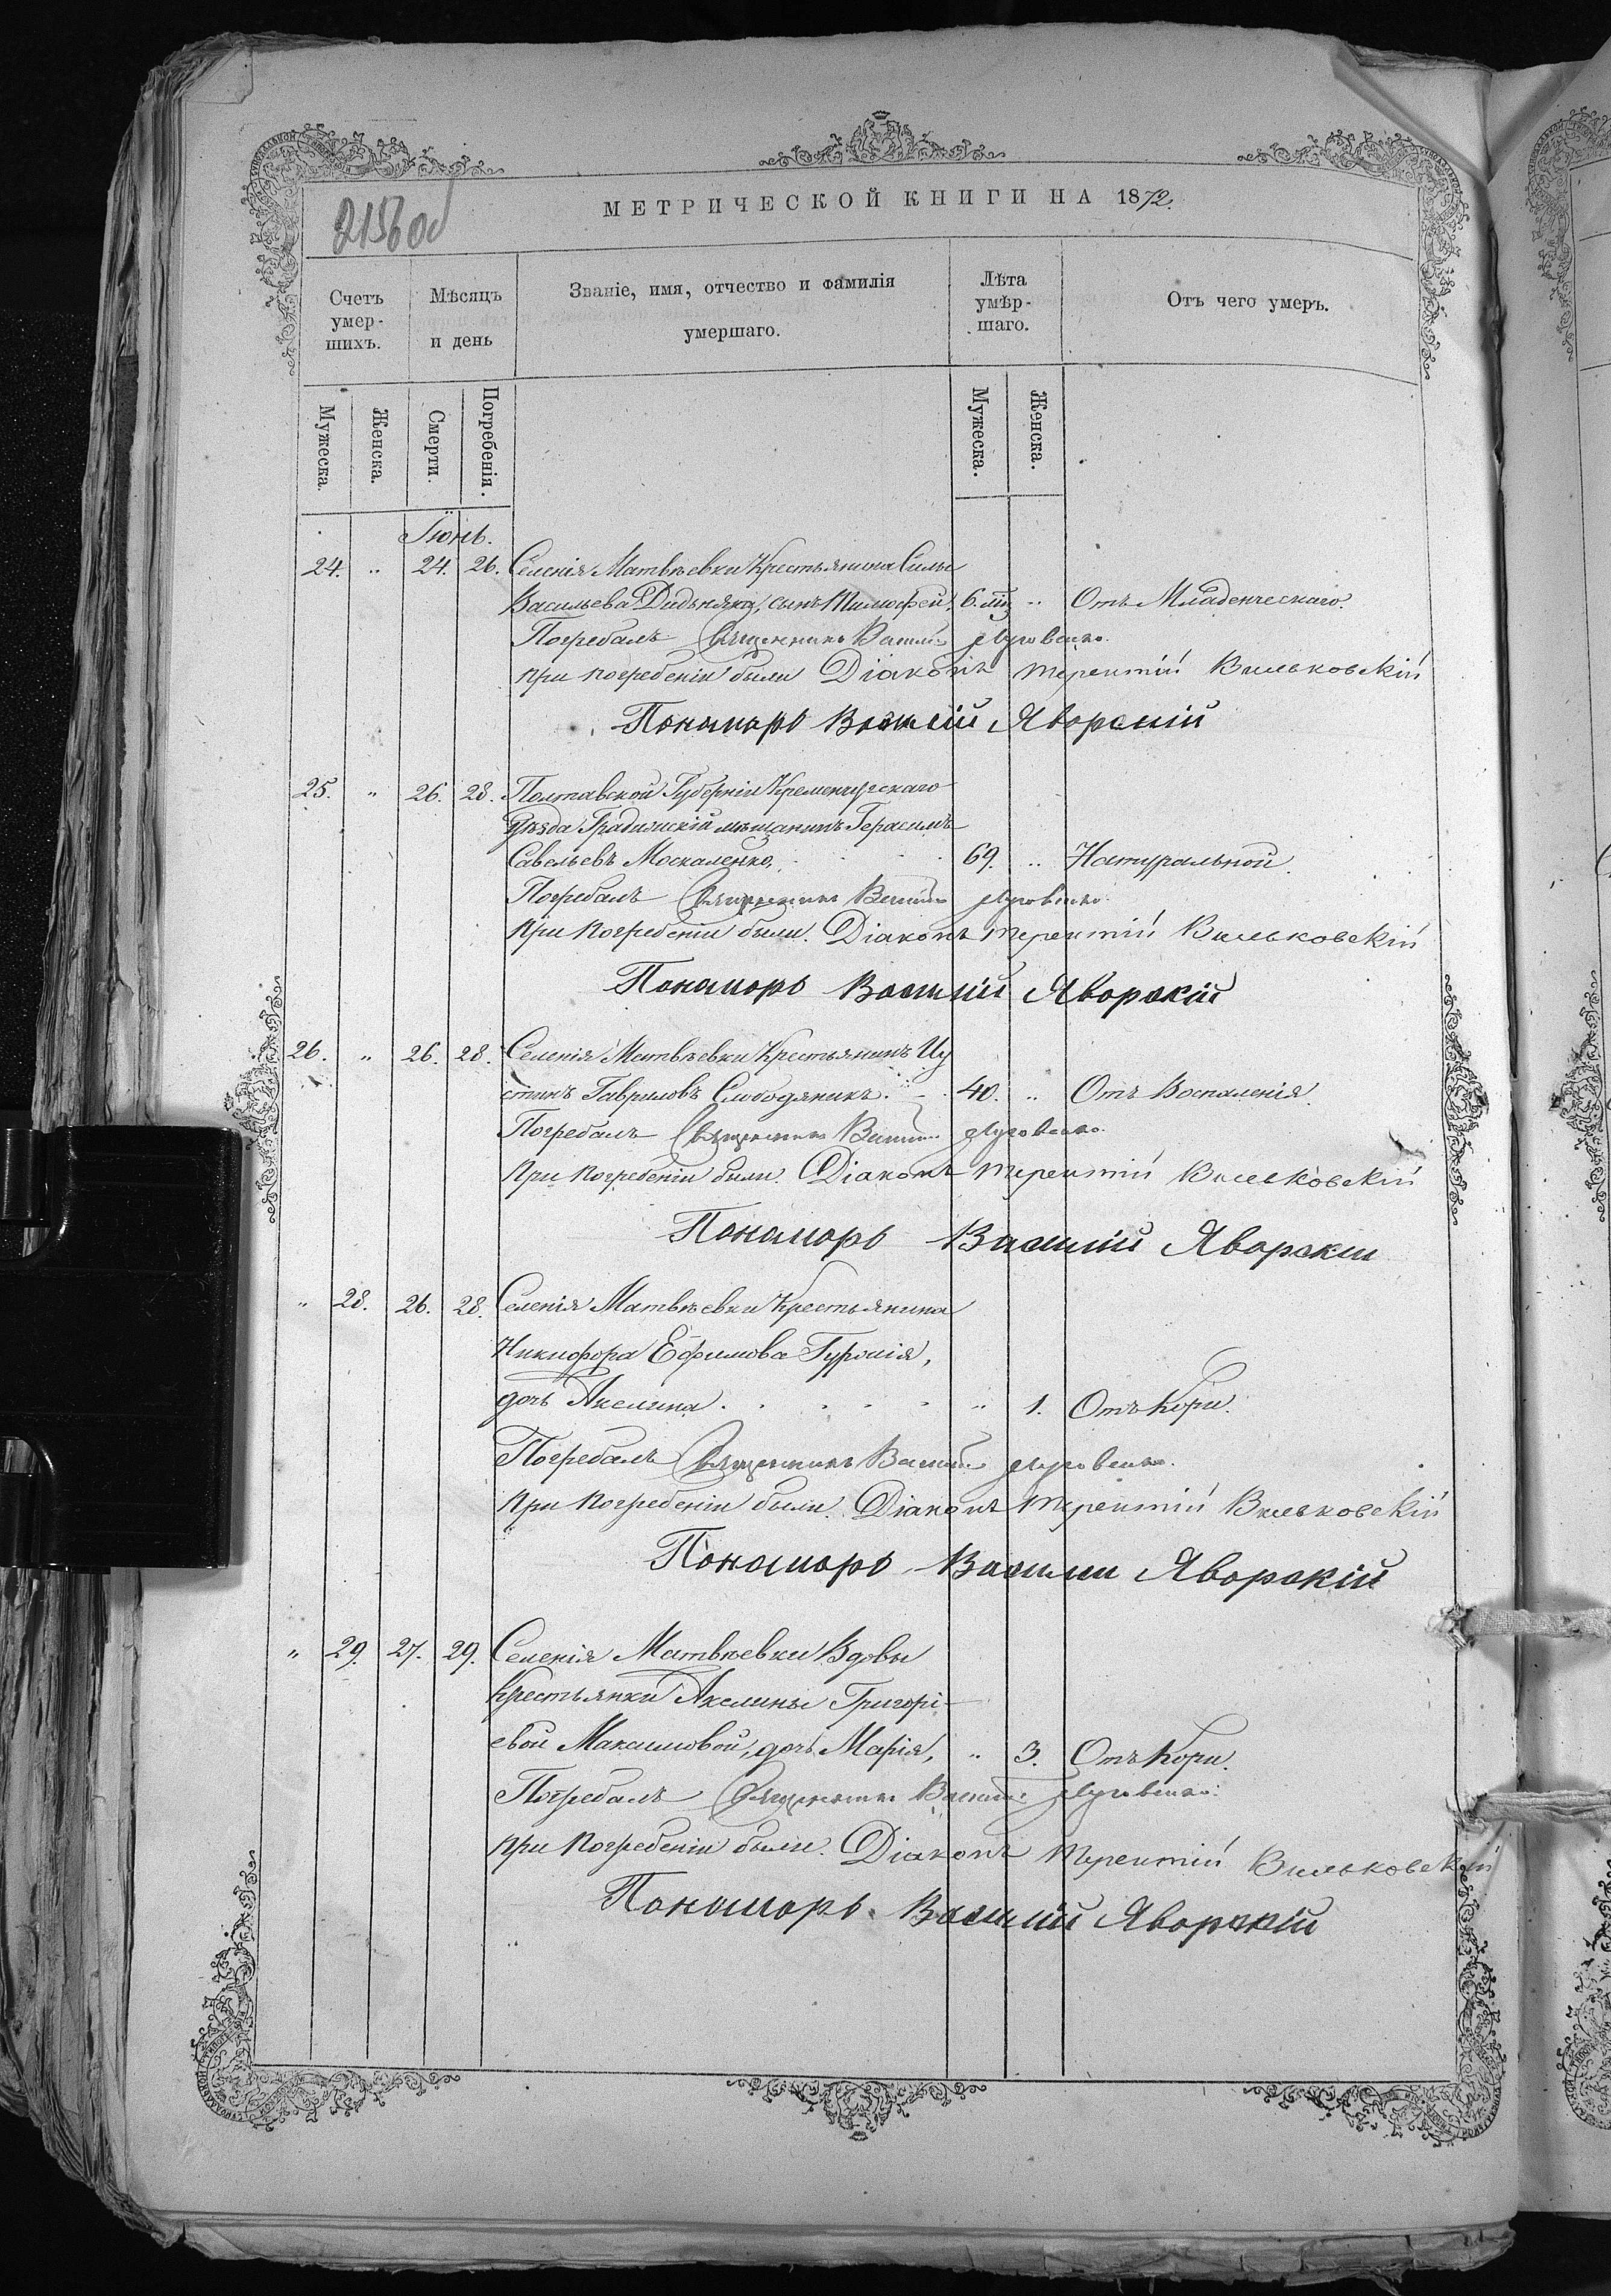 215 об
МЕТРИЧЕСКОЙ КНИГИ НА 1872.
Счетъ умер-шихъ.
Мѣсяцъ и день
Званіе, имя, отчество и фамилія умершаго.
Лѣта умѣр-шаго.
Отъ чего умеръ.
Мужеска.
Женска.
Смерти.
Погребенія.
Мужеска.
Женска.
Іюнь.
24. " 24. 26. Селенія Матвѣевки Крестьянина Силы
Васильева Дадьняка, сынъ Тимофей, 6. " Отъ Младенческаго.
Погребалъ Священникъ Василій
при погребеніи были Діаконъ Терентій Вильковскій
Пономарь Василій Яворскій
25. " 26. 28. Полтавской Губерніи Кременчугскаго
Уѣзда Градижскій мѣщанинъ Герасимъ
Савельевъ Москаленко, 69. " Натуральной.
Погребалъ Священникъ Василій
При погребеніи были. Діаконъ Терентій Вильковскій
Пономарь Василій Яворскій
26. " 26. 28. Селенія Матвѣевки Крестьянинъ Иу
стинъ Гавриловъ Слободяникъ. 40. " Отъ Воспаленія.
Погребалъ Священникъ Василій
При погребеніи были. Діаконъ Терентій Вильковскій
Пономарь Василій Яворскій
" 28. 26. 28. Селенія Матвѣевки Крестьянина
Никифора Ефимова
дочь Акелина. " 1. Отъ Кори.
Погребалъ Священникъ Василій
При погребеніи были. Діаконъ Терентій Вильковскій
Пономарь Василій Яворскій
" 29. 27. 29. Селенія Матвѣевки Вдовы
Крестьянки Акелины Григорі-
евой Максимовой, дочь Марія, " 3. Отъ Кори.
Погребалъ Священникъ Василій
При погребеніи были. Діаконъ Терентій Вильковскій
Пономарь Василій Яворскій